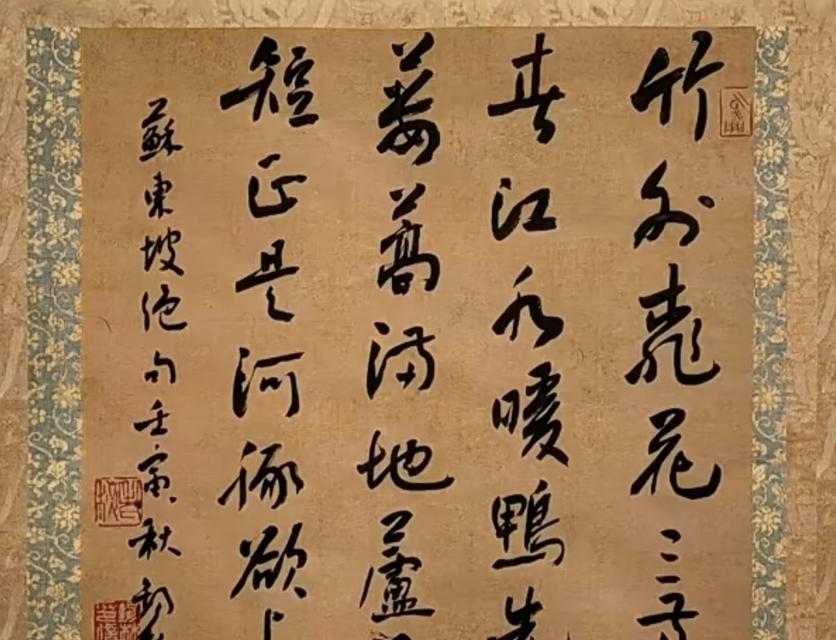 竹外桃花三两
春江水暖鴨先
蔞蒿滿地蘆
短正是河豚欲上
蘇東坡絕句壬寅秋